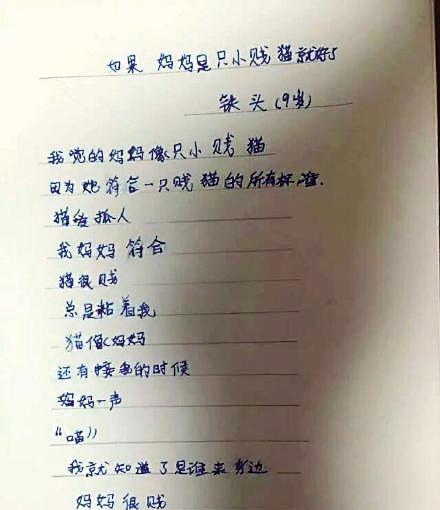 如果 妈妈是只小贱猫就好了
铁头(9岁)
我觉的妈妈像只小贱猫
因为她符合一只贱猫的所有标准.
猫会抓人
我妈妈符合
猫很贱
总是粘着我
猫像妈妈
还有接电的时候
妈妈一声
“喵”
我就知道了是谁来旁边
妈妈很贱